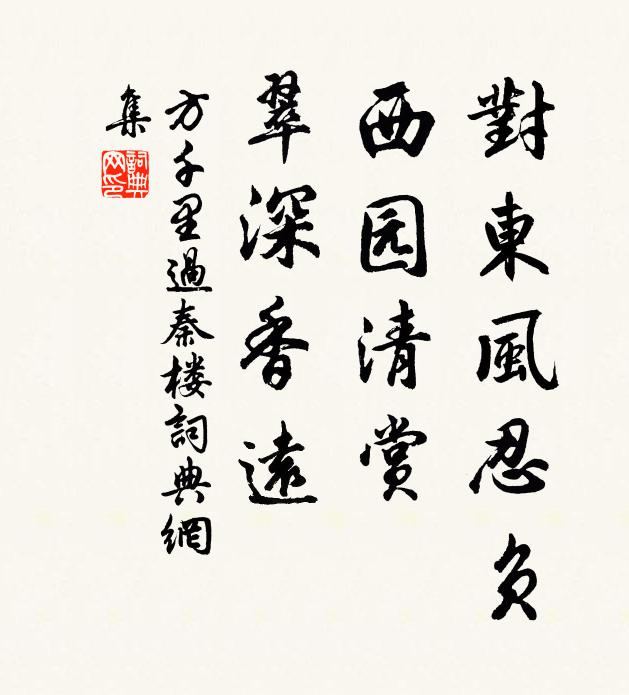 對東風忍負
西园清赏
翠深香遠
方千里過秦楼詞典網
集
詞典网印